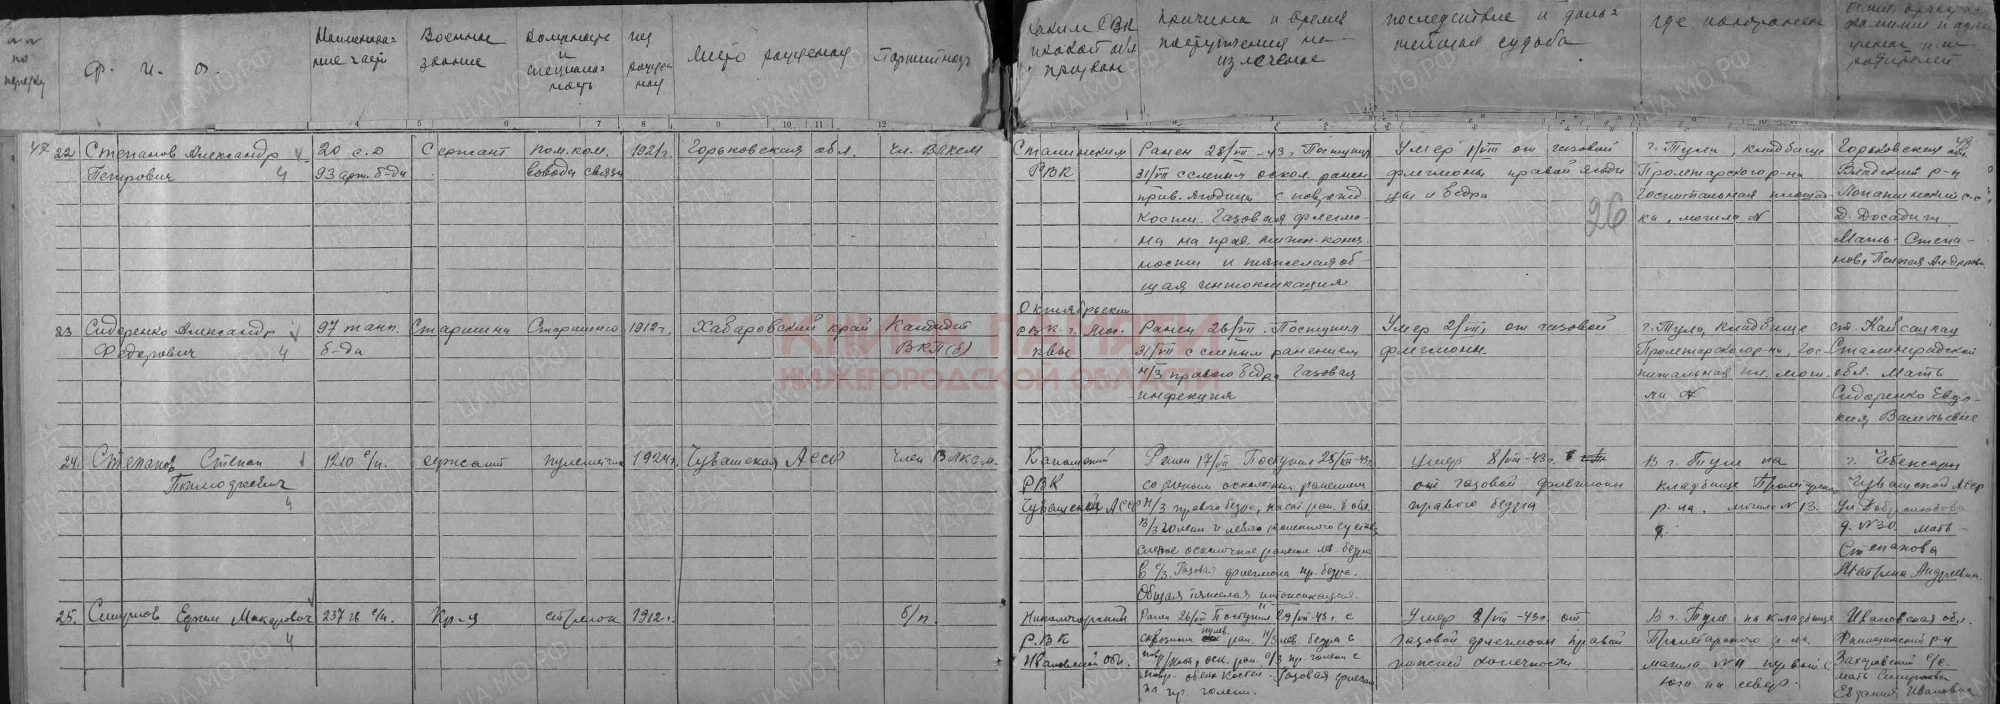 по
Ф. И. О.
Наименова-
ние части
Военное
звание
и
год
рождения
Место рождения
Партийность
каким РВК
призван
Причина и время
поступления на
излечение
последствие и даль-
нейшая судьба
где похоронен
4 5 6 7 8 9 10 11 12
47 22 Степанов Александр
Петрович
4
20 с.д
93 арт. б-да
Сержант
пом. ком.
взвода связи
1921 г.
Горьковская обл.
Чл. ВЛКСМ
Сталинским
РВК
Ранен 28/VII-43 г. Поступил
31/VII с слепым оскол. ранен
прав. ягодицы с повржд.
кости. Газовая флегмо-
на на прав. нижн. конеч.
ности и тяжелая об-
щая интоксикация
Умер 1/VIII от газовой
флегмоны правой ягоди
цы и бедра
26
г. Тула, кладбище
Пролетарского р-на
Госпитальная площад
ка, могила №
Горьковская обл.
48
Владский р-н
Лопатинский с-с
Д. Досадищ
Мать - Степа-
нова
23 Сидоренко Александр
Федорович
4
97 танк.
б-да
Старшина
Старшина
1912 г.
Хабаровский край
Кандидат
ВКП(б)
Октябрьский
РВК г. Мос.
квы
Ранен 26/VII. Поступил
31/VII с слепым ранением
н/3 правого бедра Газовая
инфекция
Умер 2/VIII от газовой
флегмоны.
г. Тула, кладбище
Пролетарского р-на, Гос
питальная пл. мог.
ла №
ст. Кайсацкая
Сталинградской
обл. Мать
Сидоренко Евдо-
кия Васильевне
24. Степанов Степан
4
1210 с/п.
сержант
пулеметчик
1924 г.
Чувашская АССР
Член ВЛКСМ
Канашский
РВК
Чувашской АССР
Ранен 17/VII Поступил
со слепым осколочн ранением
н/3 правого бедра,
в/3 голени и левого коленного сустава
слепое осколочное ранение лев. бедра
в с/3. Газовая флегмона пр. бедра.
Общая тяжелая интоксикация.
Умер 8/VIII-43 г.
от газовой флегмоны
правого бедра
В г. Туле на
кладбище Пролетарского
р-на. могила № 13
г. Чебоксары
Чувашской АССР
ул. Добролюбова
д. № 30. мать -
Степанова
Матрена Андреевна.
25. Смирнов Ефим Макарович
4
237 гв с/п.
Кр-ц
стрелок
1912 г.
б/п.
Никологорский
РВК
Ивановской обл.
Ранен 26/VII Поступил 29/VII-43 г. с
сквозным пулев. ран. н/3 лев. бедра с
повр/кости, оск. ран. с/3 пр. голени с
повр. обеих костей - Газовая флегмон
на пр. голени.
Умер 8/VIII-43 г. от
газовой флегмоны правой
нижней конечности
В г. Туле на кладбище
Пролетарского р-на
могила № 11 первый с
юга на север.
Ивановская обл.
Фоминский р-н
Захаровский с/с.
мать Смирнова
Евдокия Ивановна
КНИГА ПАМЯТИ
НИЖЕГОРОДСКОЙ ОБЛАСТИ
ЦАМО.РФ